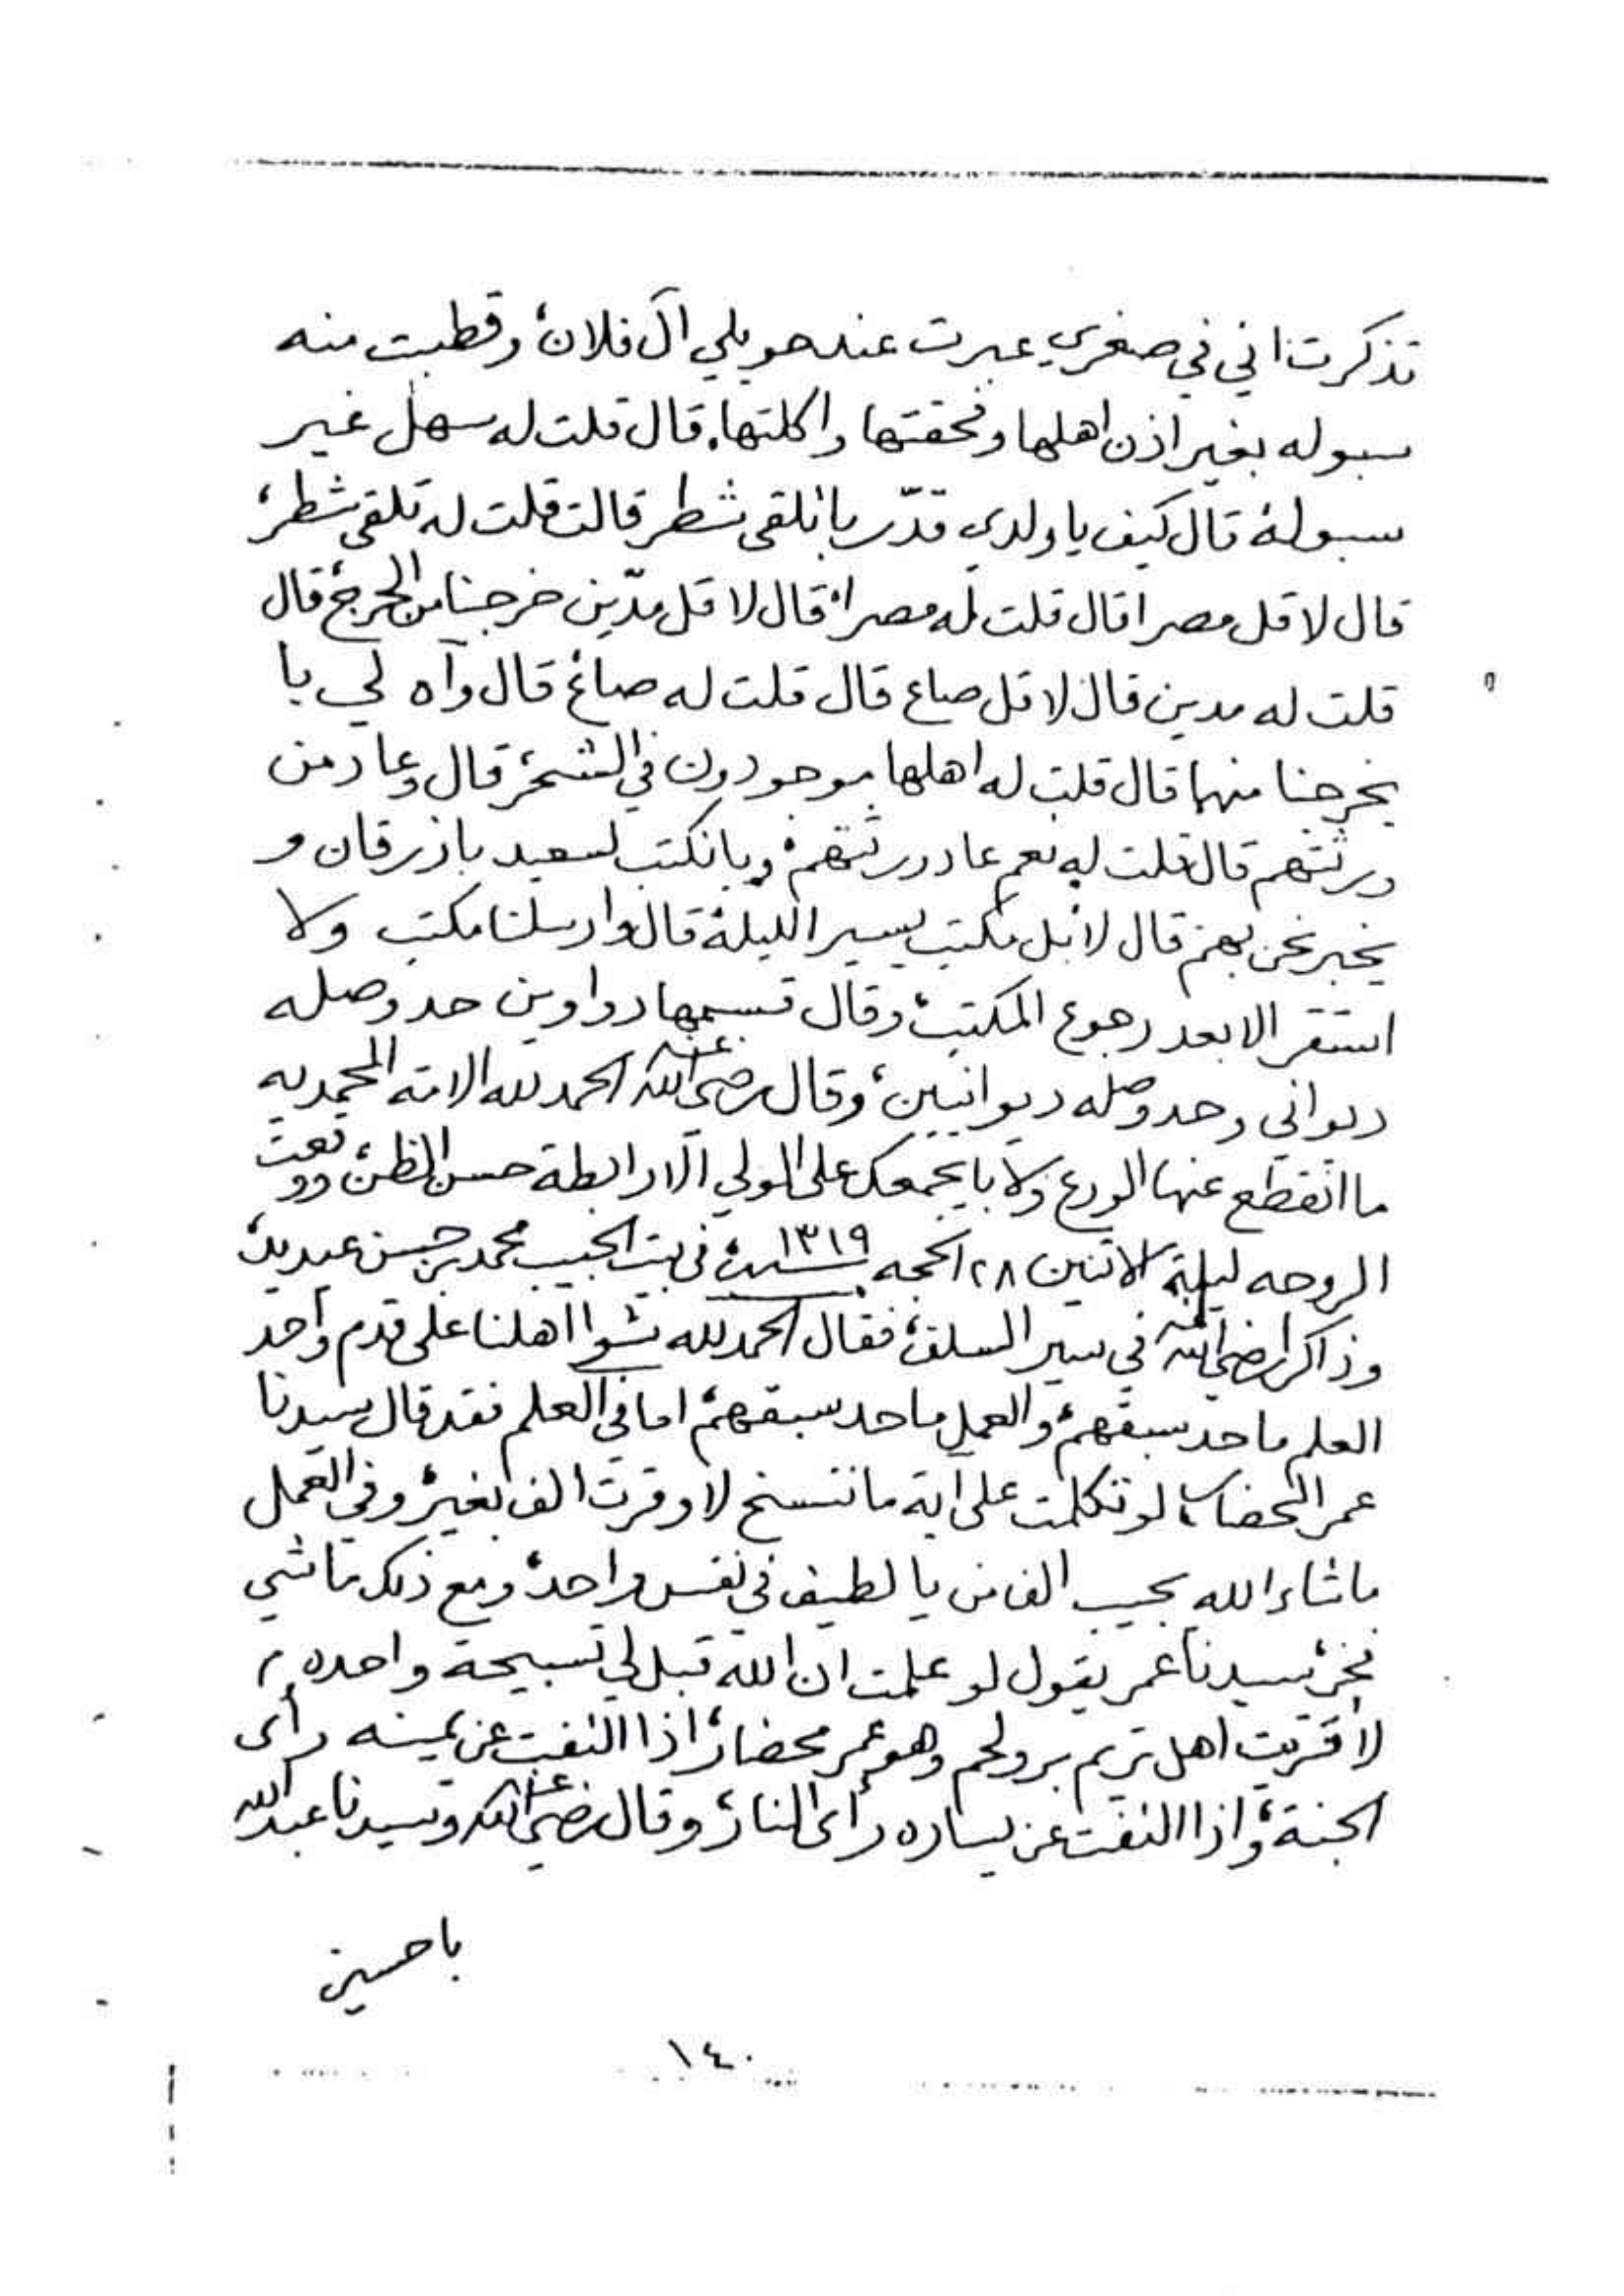 تذكرت اني في صغري عبرت عند حويلي آل فلان، وقطبت منه
سبوله بغير اذن اهلها وفحقتها واكلتها. قال قلت له سهل غير
سبولة قال كيف يا ولدي قدّر با تلقي شطر قالت قلت له تلقي شطر،
قال لا قل مصرا قال قلت له مصرا، قال لا قل مدّين خرجنا من الحرج، قال
قلت له مدين قال لا قل صاع قال قلت له صاع، قال وآه لي با
يخرجنا منها قال قلت له اهلها موجودون في الشحر، قال وعاد من
ورثتهم قال قلت له نعم عاد ورثتهم، وبا نكتب لسعيد باذرقان و
يخبر نحن بهم، قال لا بل مكتب يسير الليلة قال وارسلنا مكتب ولا
استقر الا بعد رجوع المكتب، وقال تسمها دواوين حد وصله
ديواني وحد وصله ديوانيين، وقال رضي الله عنه الحمد لله الامة المحمديه
ما انقطع عنها الورع ولا با يجمعك على الولي الا رابطة حسن الظن، ووقعت
الروحه ليلة الاثنين ٢٨ الحجه سنة ١٣١٩ في بيت الحبيب محمد بن حسن عيديد،
وذاكر رضي الله عنه في سير السلف، فقال الحمد لله نشوا اهلنا على قدم واحد
العلم ما حد سبقهم، والعمل ما حد سبقهم، اما في العلم فقد قال سيدنا
عمر المحضار، لو تكلمت على آية ما ننسخ لاوقرت الف بغير، وفي العمل
ما شاء الله يجيب الف من يا لطيف في نفس واحد، ومع ذلك ما شي
فخر، سيدنا عمر يقول لو علمت ان الله قبل لي تسبيحة واحده،
لاقريت اهل تريم برولحم وهو عمر محضار، اذا التفت عن يمينه رأى
الجنة، واذا التفت عن يساره رأى النار، وقال رضي الله عنه وسيدنا عبدالله
باحسين
١٤٠